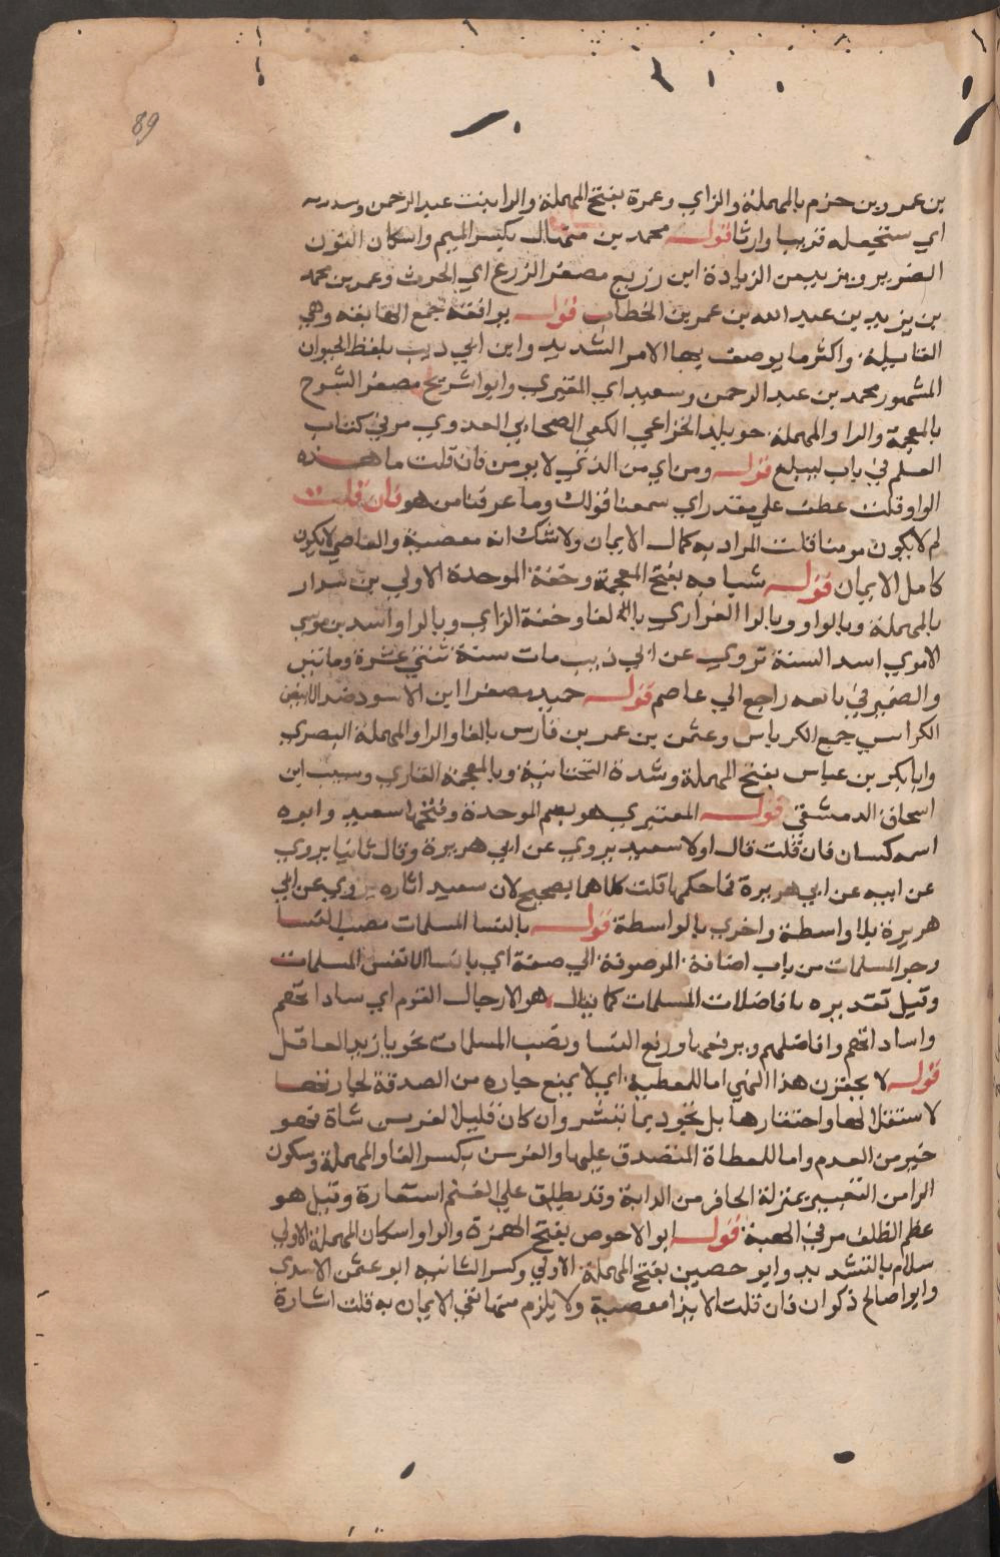 89
بن عمرو بن حزم بالمهملة والزاي وعمرة بفتح المهملة والرا بنت عبد الرحمن
اي ستجعله قريبا وارثا قوله محمد بن منهال بكسر الميم واسكان النون
الضرير ويزيد من الزيادة ابن زريع مصغر الزرع اي الحرث وعمر بن محمد
بن يزيد بن عبد الله بن عمر بن الخطاب قوله بوائقه جمع البائقة وهي
الغايلة واكثر ما يوصف بها الامر الشديد وابن ابي ذيب بلفظ الحيوان
المشهور محمد بن عبد الرحمن وسعيد اي المقبري وابوا شريح مصغر الشرح
بالمعجمة والرا والمهملة خويلد الخزاعي الكعبي الصحابي العدوي مر في كتاب
العلم في باب ليبلغ قوله ومن اي من الذي لا يومن فان قلت ما هذه
الواو قلت عطف علي مقدر اي سمعنا قولك وما عرفنا من هو فان قلت
لم لا يكون مومنا قلت المراد به كمال الايمان ولا شك انه معصية والعاصي لا يكون
كامل الايمان قوله شبابه بفتح المعجمة وخفة الموحدة الاولي بن سوار
بالمهملة وبالواو وبالرا الفزاري بالفا وخفة الزاي وبالرا واسد بن موسي
الاموي اسد السنة تروي عن ابي ذيب مات سنة ثنتي عشرة وماتين
والضمير في تابعه راجع الي عاصم قوله حميد مصغرا ابن الاسود ضد الابيض
الكرابيسي جمع الكرباس وعثمن بن عمر بن فارس بالفا والرا والمهملة البصري
وابا بكر بن عياس بفتح المهملة وشدة التحتانية وبالمعجمة القاري وشعيب ابن
اسحاق الدمشقي قوله المقبري هو بضم الموحدة وفتحها سعيد وابوه
اسمه كيسان فان قلت قال اولا سعيد يروي عن ابي هريرة وقال ثانيا يروي
عن ابيه عن ابي هريرة فما حكمها قلت كلاهما صحيح لان سعيد اتاره يروي عن ابي
هريرة بلا واسطة واخري بالواسطة قوله يا نسا المسلمات نصب النسا
وجر المسلمات من باب اضافة الموصوفة الي صفة اي يا نسا الانفس المسلمات
وقيل تقديره يا فاضلات المسلمات كما يقال هو لا رجال القوم اي ساداتهم
وافاضلهم وبرفعها ورفع النسا ونصب المسلمات نحو يا زيد العاقل
قوله لا يحقرن هذا النهي اما للمعطية اي لا يمنع جاره من الصدقة لجارتها
لاستقلالها واحتقارها بل يجود بما تيسر وان كان قليلا كفرسن شاة فهو
خير من العدم واما للمعطاة المتصدق عليها والفرسن بكسر الفا والمهملة وسكون
الرا من البعير بمنزلة الحافر من الدابة وقد يطلق علي الغنم استعارة وقيل هو
عظم الظلف مر في الهبة قوله ابو الاحوص بفتح الهمزة والواو اسكان المهملة الاولي
سلام بالتشديد وابو حصين بفتح المهملة الاولي وكسر الثانيه ابو عثمن الاسدي
وابوا صالح ذكوان فان قلت الايذا معصية ولا يلزم منها نفي الايمان به قلت اشارة